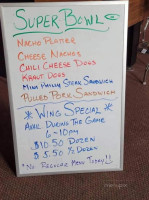 SUPER BOWL
NACHO PLATTER
CHEESE NACHOS
CHILI CHEESE DOGS
KRAUT DOGS
MINI PHILLY STEAK SANDWICH
PULLED PORK SANDWICH
* WING SPECIAL *
AVAIL DURING THE GAME
6-10PM
$10.50 DOZEN
$5.50 ½ DOZEN
*NO REGULAR MENU TODAY!!